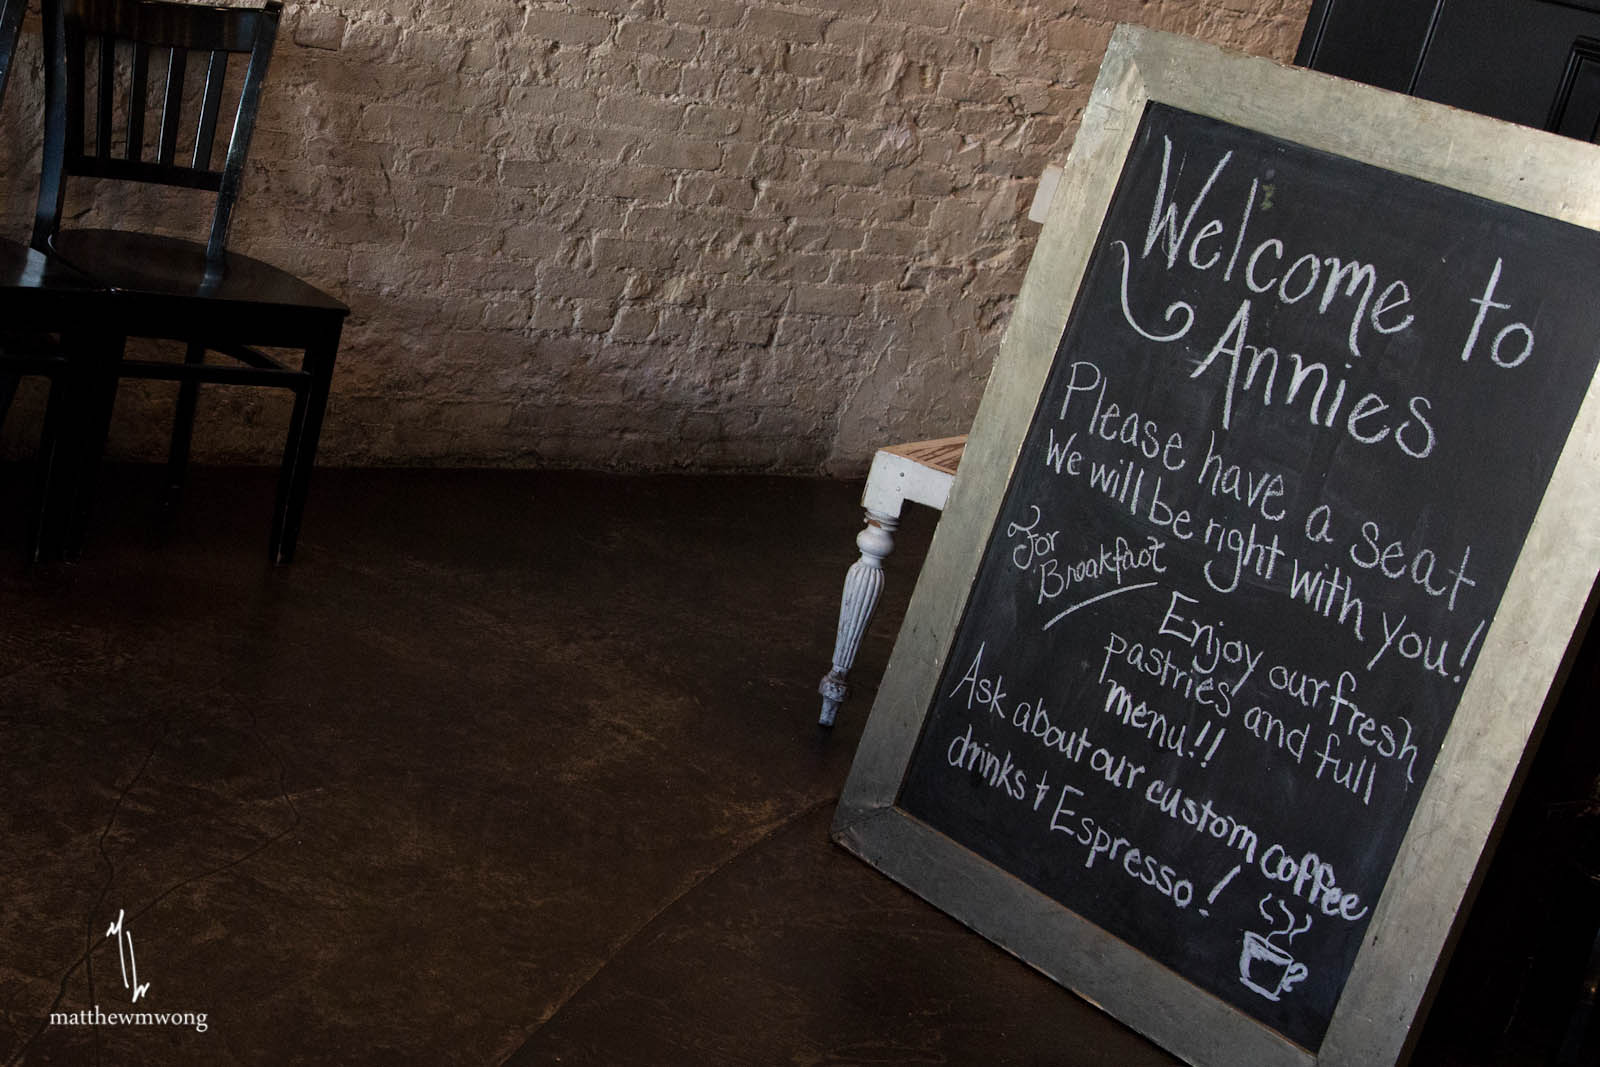 Welcome to
Annies
Please have a seat
We will be right with you!
For
Breakfast
Enjoy our fresh
pastries and full
menu!!
Ask about our custom coffee
drinks + Espresso!
matthewmwong